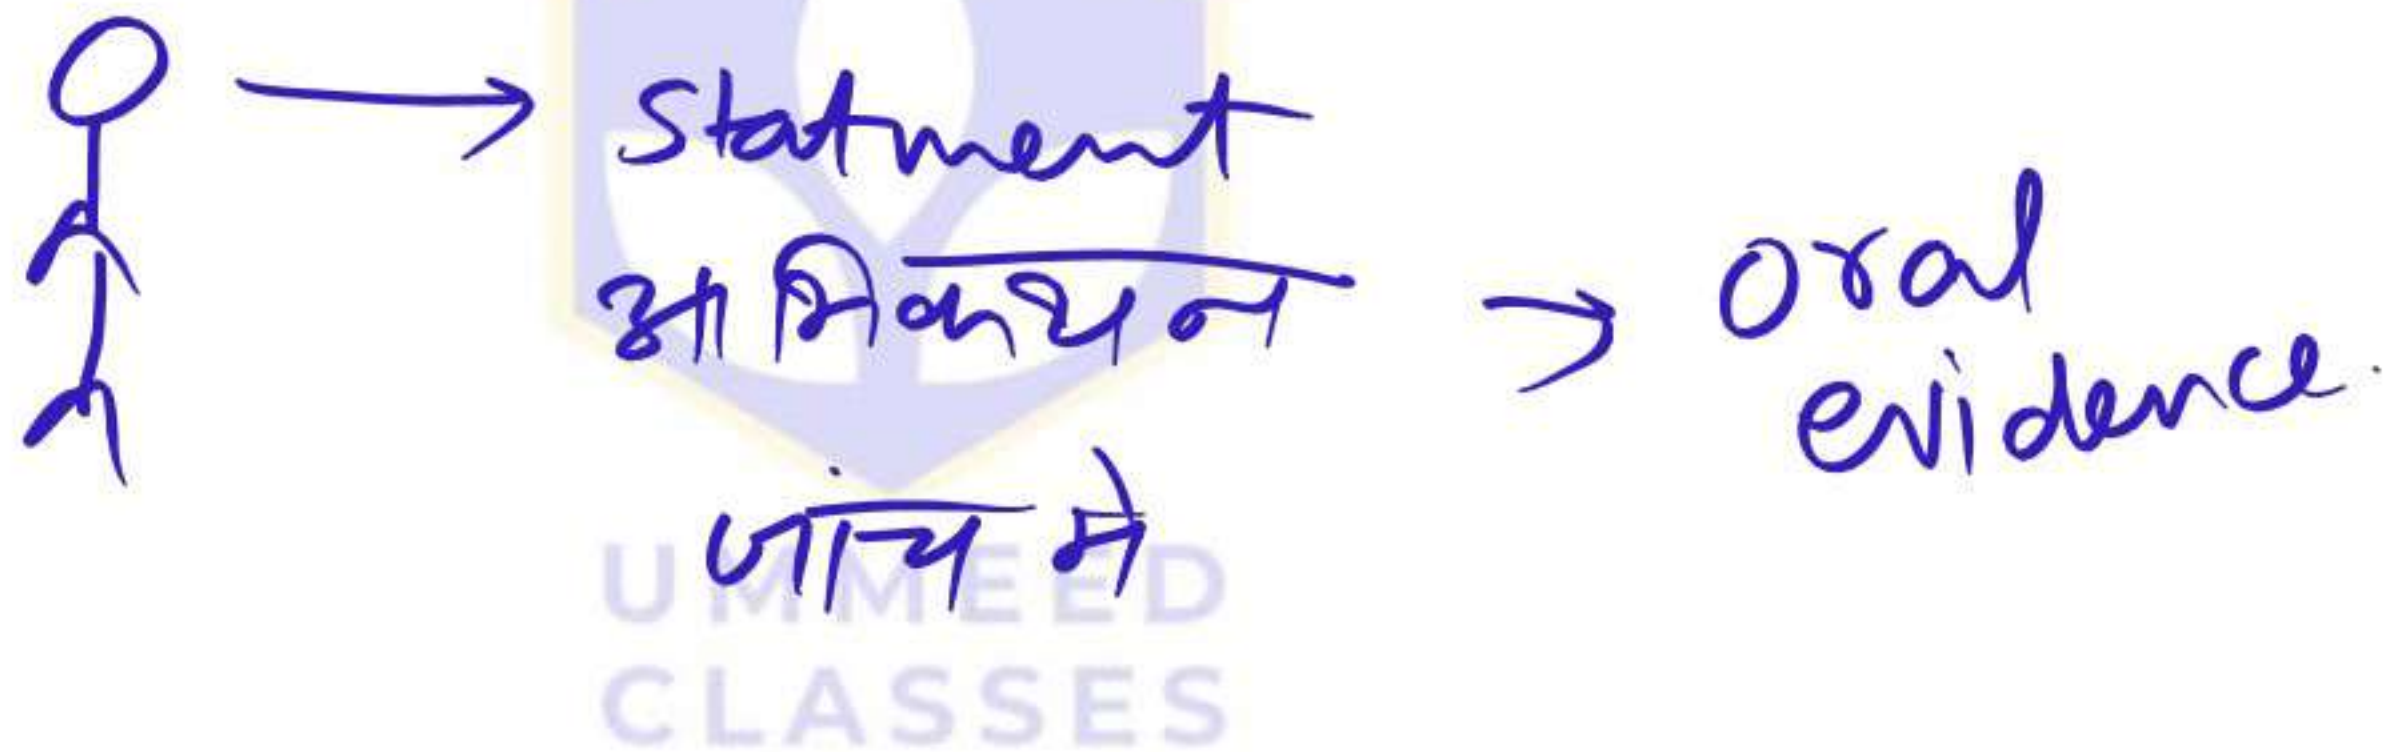 Statment
आभिकथन
→ oral
evidence.
जांच मे
UMMEED
CLASSES